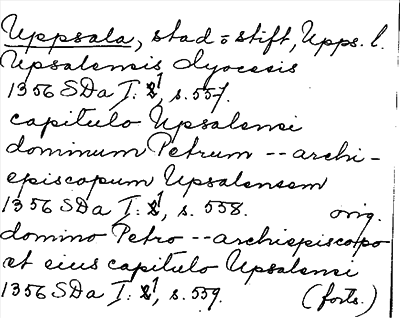 Uppsala, stad o stift, Upps. l.
Upsalensis dyocesis
1356 SDa I: 1, s. 557.
capitulo Upsalensi
dominum Petrum -- archi-
episcopum Upsalensem
1356 SDa I: 1, s. 558. orig.
domino Petro -- archiepiscopo
et eius capitulo Upsalensi
1356 SDa I: 1, s. 559. (forts.)